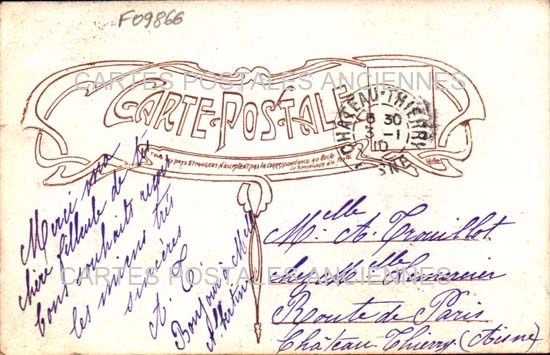 F09866
CARTES POSTALES ANCIENNES
CARTE POSTALE
Tous les pays étrangers n'acceptent pas la correspondance au Recto
CHATEAU-THIERRY
6 30
3 -1
10
AISNE
Merci
chère filleule de tes
bons souhaits
les miens très
sincères
A. T.
Bonjour à Melle
Albertine
Melle A. Trouillot
chez Melle
Route de Paris
Château-Thierry (Aisne)
CARTES POSTALES ANCIENNES